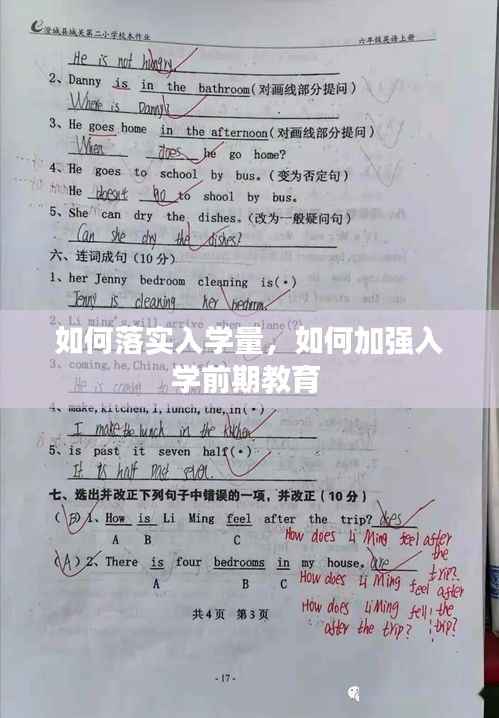 澄城县城关第二小学校本作业 六年级英语上册
He is not hungry
2、Danny is in the bathroom(对画线部分提问)
Where is Danny?
3、He goes home in the afternoon(对画线部分提问)
When does he go home?
4、He goes to school by bus.(变为否定句)
He doesn't go to shool by bus.
5、She can dry the dishes.(改为一般疑问句)
Can she dry the dishes?
六、连词成句(10分)
1、her Jenny bedroom cleaning is(•)
Jenny is cleaning her bedroom.
如何落实入学量，如何加强入
学前期教育
3、coming,he,China,
4、make,kitchen,I,lunch,the,in(•)
I make the lunch in the kitchen.
5、is past it seven half(•)
It is half past seven.
七、选出并改正下列句子中错误的一项，并改正(10分)
(B)1、How is Li Ming feel after the trip? does
A B C
How does Li Ming feel after the trip?
(A)2、There is four bedrooms in my house. are
A B C
How does Li Ming feel after
How does Li Ming fell the
after the trip? trip?
共4页 第3页
- 17 -